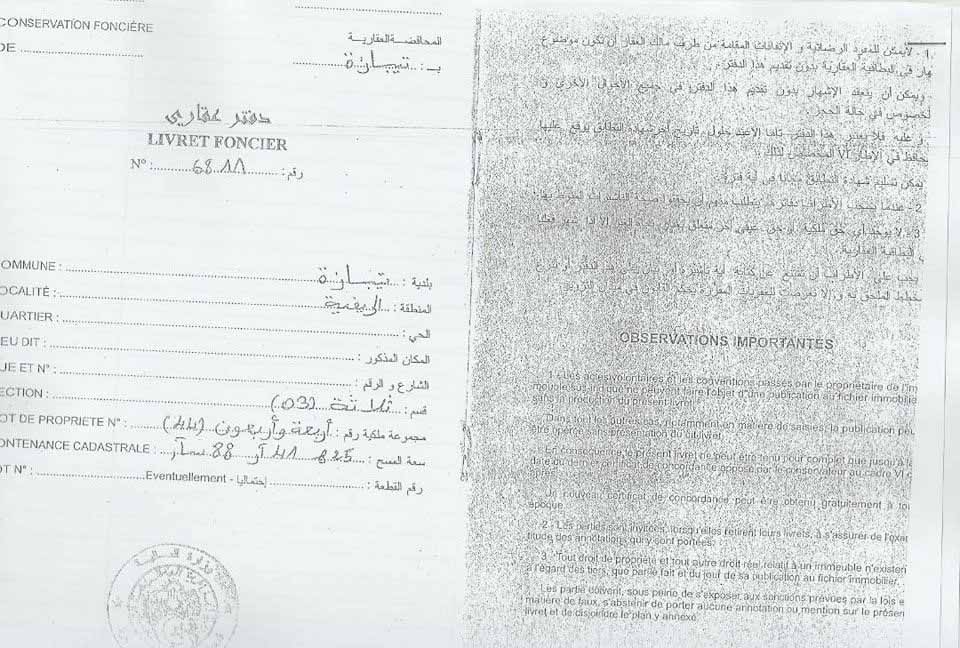 CONSERVATION FONCIÈRE
DE
المحافظة العقارية
بـ : تيبازة
دفتر عقاري
LIVRET FONCIER
N° : 6811 رقم :
COMMUNE : تيبازة بلدية :
LOCALITÉ : الريفية المنطقة :
QUARTIER : الحي :
LIEU DIT : المكان المذكور :
RUE ET N° : الشارع و الرقم :
SECTION : ثلاثة (03) قسم :
LOT DE PROPRIETE N° : أربعة وأربعون (44) مجموعة ملكية رقم :
CONTENANCE CADASTRALE : سعة المسح : 825 41 آر 88 سآر
LOT N° : Eventuellement - إحتماليا رقم القطعة :
وزارة المالية
1 - لايمكن للعقود الرضائية و الإتفاقات المقامة من طرف مالك العقار أن تكون موضوع
إشهار في البطاقية العقارية بدون تقديم هذا الدفتر.
ويمكن أن ينعقد الإشهار بدون تقديم هذا الدفتر في جميع الأحوال الأخرى و
بالخصوص في حالة الحجز.
و عليه فلا يعتبر هذا الدفتر تاما إلا عند حلول تاريخ آخر شهادة التطابق يوقع عليها
المحافظ في الإطار VI المخصص لذلك.
يمكن تسليم شهادة التطابق مجانا في أية فترة.
2 - عندما يسحب الأطراف دفاترهم يطلب منهم أن يحققوا صحة التأشيرات
3 - لا يوجد أي حق ملكية أو حق عيني آخر
البطاقية العقارية.
يجب على الأطراف أن تمتنع عن كتابة أية تأشيرة
OBSERVATIONS IMPORTANTES
1 - Les actes volontaires et les conventions passés par le propriétaire de l'im
meuble susvisé que ne peuvent faire l'objet d'une publication au fichier immobilie
sans la production du présent livret.
Dans tout les autres cas, notamment en matière de saisies, la publication peu
être opérée sans présentation du dit livret.
En conséquence, le présent livret ne peut être tenu pour complet que jusqu'à la
date du dernier certificat de concordance apposé par le conservateur au cadre VI
Un nouveau certificat de concordance peut être obtenu gratuitement à tou
époque.
2 - Les parties sont invitées, lorsqu'elles retirent leurs livrets, à s'assurer de l'exac
titude des annotations qui y sont portées.
3 - Tout droit de propriété et tout autre droit réel relatif à un immeuble n'existen
à l'égard des tiers, que par le fait et du jour de sa publication au fichier immobilier.
Les partie doivent, sous peine de s'exposer aux sanctions prévues par la lois e
matière de faux, s'abstenir de porter aucune annotation ou mention sur le présen
livret et de disjoindre le plan y annexé.